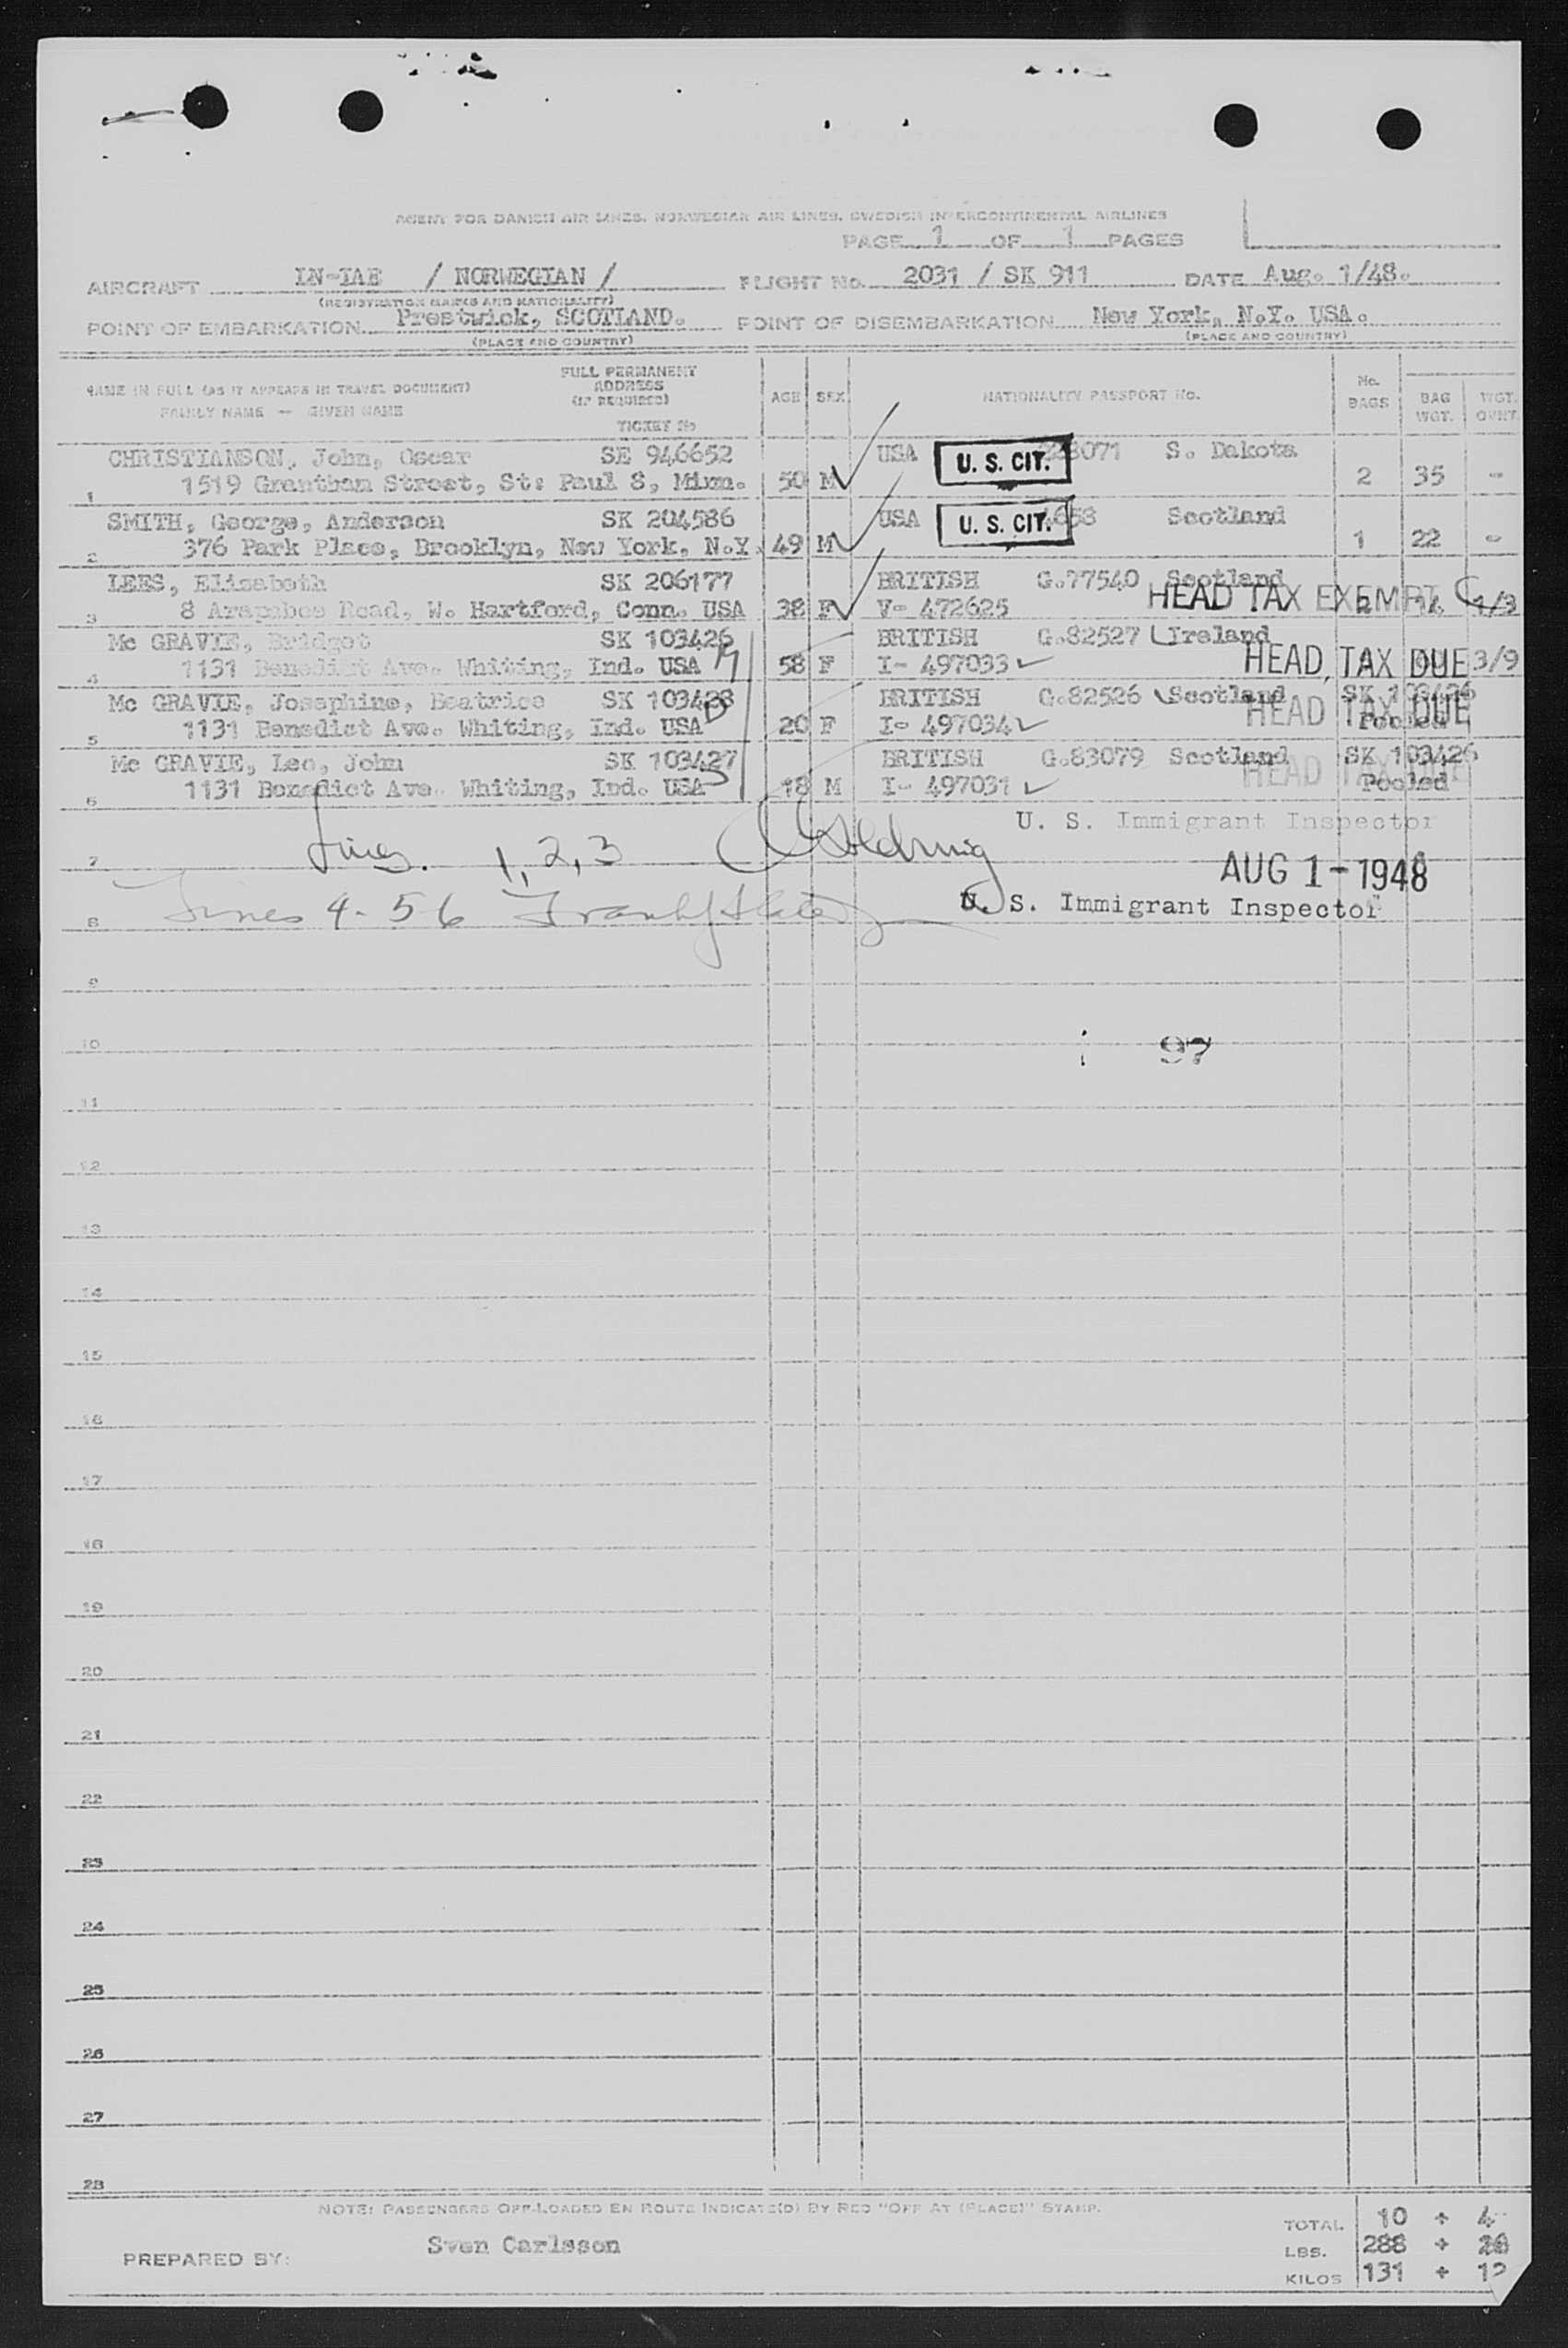 AGENT FOR DANISH AIR LINES, NORWEGIAN AIR LINES, SWEDISH INTERCONTINENTAL AIRLINES
PAGE 1 OF 1 PAGES
AIRCRAFT LN-IAE / NORWEGIAN / FLIGHT No. 2031 / SK 911 DATE Aug. 1/48.
(REGISTRATION MARKS AND NATIONALITY)
POINT OF EMBARKATION Prestwick, SCOTLAND. POINT OF DISEMBARKATION New York, N.Y. USA.
(PLACE AND COUNTRY) (PLACE AND COUNTRY)
NAME IN FULL (AS IT APPEARS IN TRAVEL DOCUMENT) FULL PERMANENT ADDRESS (IF REQUIRED) AGE SEX NATIONALITY PASSPORT No. No. BAGS BAG WGT. WGT. OVWT.
FAMILY NAME -- GIVEN NAME TICKET No
CHRISTIANSON, John, Oscar SE 946652 USA U. S. CIT. 3071 S. Dakota
1 1519 Grantham Street, St: Paul 8, Minn. 50 M 2 35 -
SMITH, George, Anderson SK 204586 USA U. S. CIT. 4653 Scotland
2 376 Park Place, Brooklyn, New York, N.Y. 49 M 1 22 -
LEES, Elizabeth SK 206177 BRITISH G.77540 Scotland
3 8 Arapahoe Road, W. Hartford, Conn. USA 38 F V- 472625 HEAD TAX EXEMPT 1/3
Mc GRAVIE, Bridget SK 103426 BRITISH G.82527 Ireland
4 1131 Benedict Ave. Whiting, Ind. USA 58 F I- 497033 HEAD TAX DUE 3/9
Mc GRAVIE, Josephine, Beatrice SK 103428 BRITISH G.82526 Scotland SK 103426
5 1131 Benedict Ave. Whiting, Ind. USA 20 F I- 497034 HEAD TAX DUE Pooled
Mc GRAVIE, Leo, John SK 103427 BRITISH G.83079 Scotland SK 103426
6 1131 Benedict Ave. Whiting, Ind. USA 18 M I- 497031 HEAD TAX DUE Pooled
U. S. Immigrant Inspector
7 Lines. 1, 2, 3
AUG 1 - 1948
8 Lines 4-5 6 U. S. Immigrant Inspector
9
10 97
11
12
13
14
15
16
17
18
19
20
21
22
23
24
25
26
27
28
NOTE: PASSENGERS OFF-LOADED EN ROUTE INDICATE(D) BY RED "OFF AT (PLACE)" STAMP.
TOTAL 10 + 4
PREPARED BY: Sven Carlsson
LBS. 288 + 26
KILOS 131 + 12